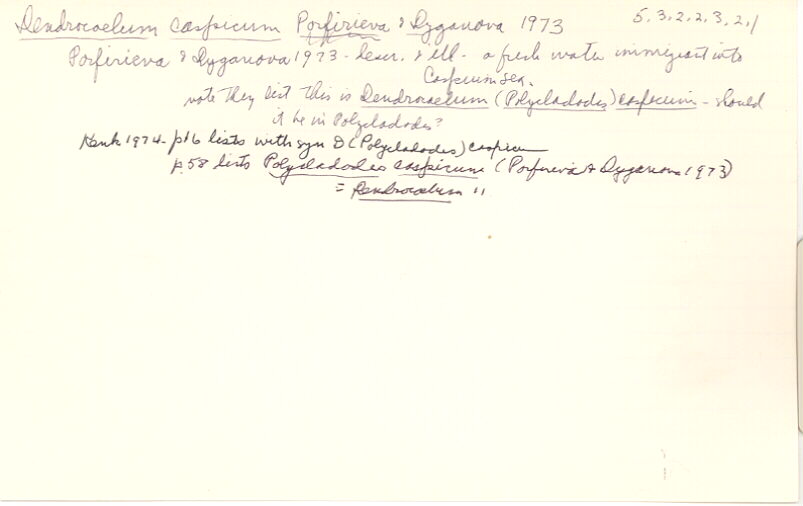 Dendrocoelum caspicum Porfirieva & Dyganova 1973 5.3.2.2.3.2.1
Porfirieva & Dyganova 1973 - descr. & ill - a fresh water immigrant into
Caspium Sea.
note they list this is Dendrocoelum (Polycladodes) caspicum - should
it be in Polycladodes?
Kenk 1974 - p16 lists with syn D (Polycladodes) caspicum
p.58 lists Polycladodes caspicum (Porfireva & Dyganova 1973)
= Dendrocoelum "